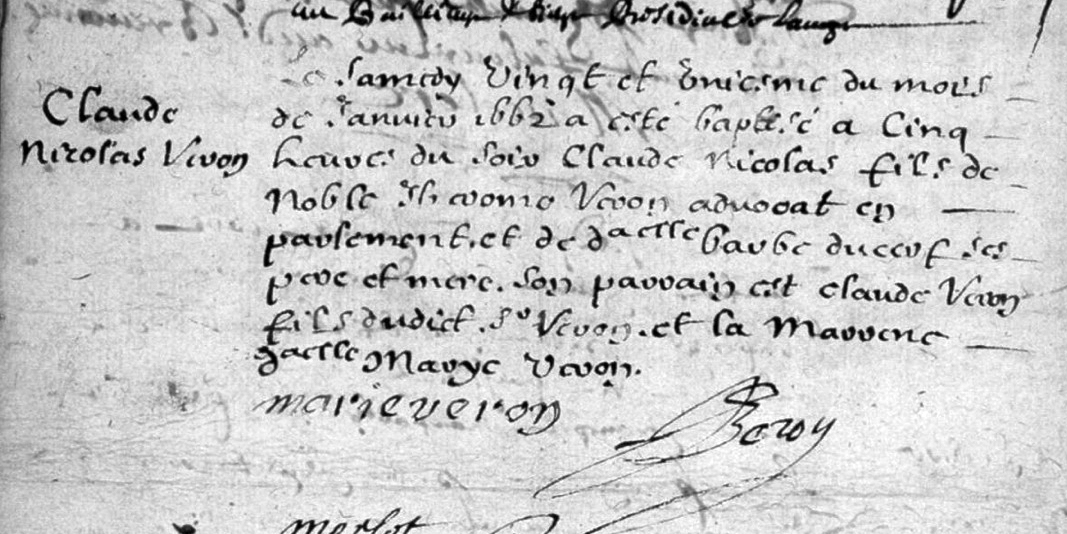 au Bailliage & siege Presidial de Langres
Le Samedy Vingt et Unieme du mois
Claude
de Janvier 1662 a esté baptisé a Cinq
Nicolas Veron
heures du soir Claude Nicolas fils de
Noble Jherome Veron advocat en
parlement et de daelle barbe ducerf ses
pere et mere. Son parrain est claude Veron
fils dudict Sr Veron. et la Marrene
daelle Marye Veron.
marie veron
merlot